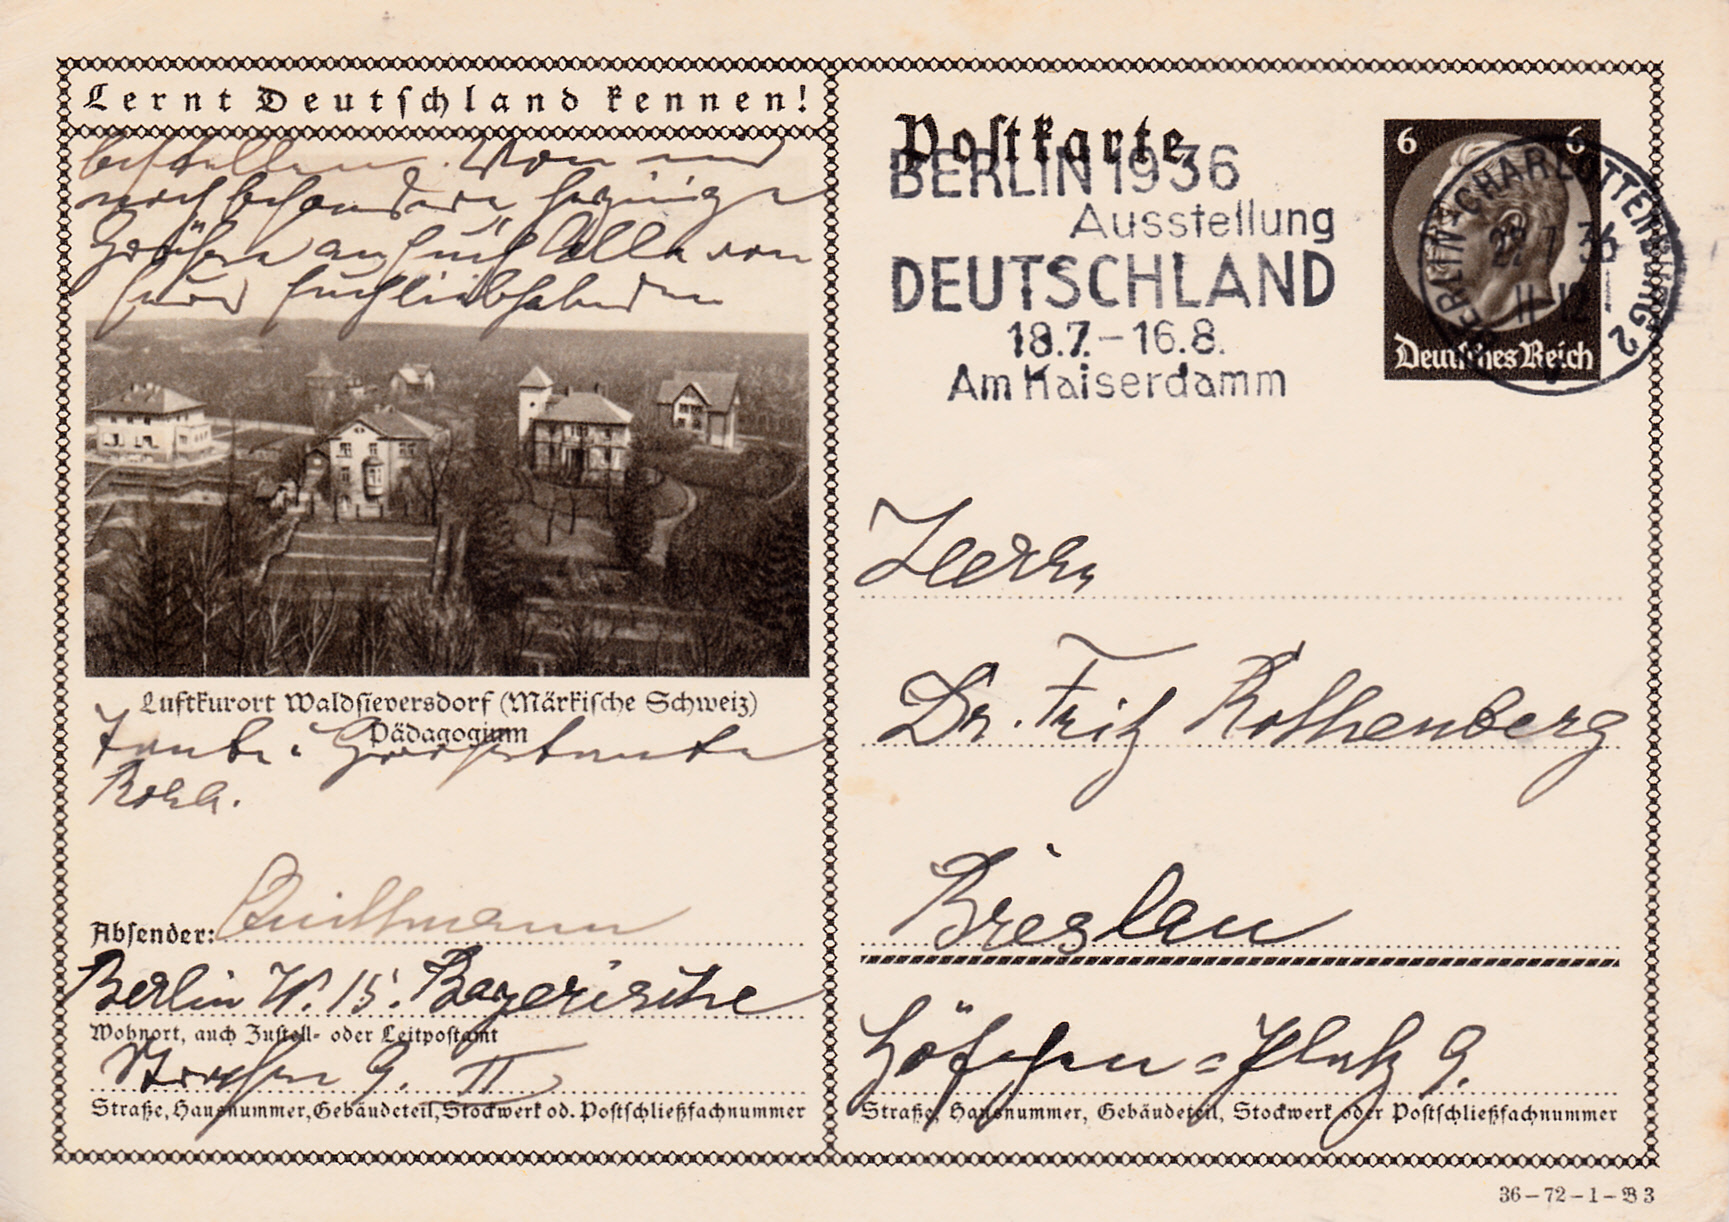 Lernt Deutschland kennen!
bestellen. Von mir
noch besonders herzinnige
Grüße an Euch Alle von
Eurer Euch liebhabenden
Luftkurort Waldsieversdorf (Märkische Schweiz)
Pädagogium
Tante
Rosa.
Absender:
Berlin W. 15. Bayerische
Wohnort, auch Zustell- oder Leitpostamt
Strasse 9. II
Straße, Hausnummer, Gebäudeteil, Stockwerk od. Postschließfachnummer
Postkarte
BERLIN 1936
Ausstellung
DEUTSCHLAND
18.7.–16.8.
Am Kaiserdamm
6 6
Deutsches Reich
BERLIN-CHARLOTTENBURG 2
7 36
11-12
Herrn
Dr. Fritz Rothenberg
Breslau
Höfchen-Platz 9.
Straße, Hausnummer, Gebäudeteil, Stockwerk oder Postschließfachnummer
36–72–1–B 3